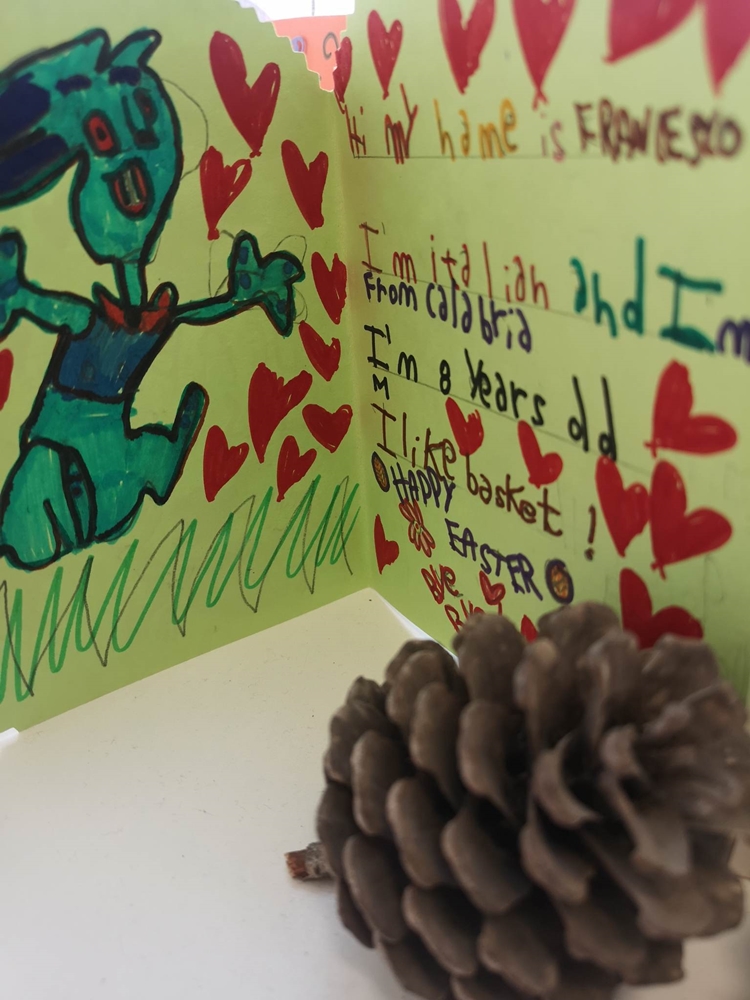 Hi my name is FRANCESCO
I'm italian and Im
From Calabria
I'm 8 Years old
M
I like basket !
HAPPY
EASTER
BYE
BYE!